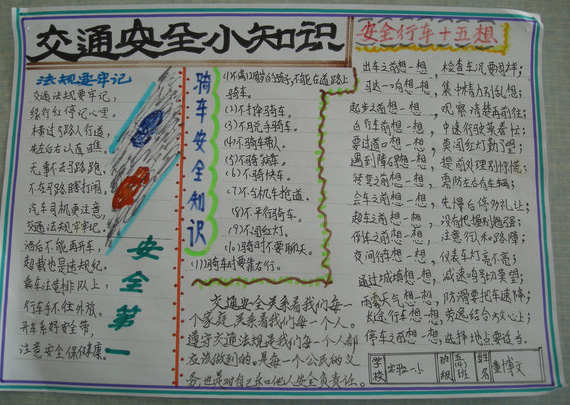 交通安全小知识
安全行车十五想
法规要牢记
交通法规要牢记,
绿行红停记心里
横过马路人行道,
无事不去马路跑,
不在马路瞎打闹,
汽车司机更注意,
交通法规牢记.
酒后不能再开车,
超载也是违规纪.
乘车注意排队上,
行车手不伸外放.
开车系好安全带,
注意安全保健康.
安全第一
骑车安全知识
骑车.
(2)不打伞骑车.
(3)不脱手骑车.
(4)不骑车带人.
(5)不骑病车.
(6)不骑快车.
(7)不与机车抢道.
(8)不平行骑车.
(9)不闯红灯.
(10)骑时不要聊天.
(11)骑车时要靠右行.
出车之前想一想,检查车况要周详;
马达一响想一想,集中精力别乱想;
起步之前想一想,观察清楚再前往;
自行车前想一想,中速行驶莫着忙;
要过道口想一想,莫闯红灯勤了望;
遇到障碍想一想,提前处理别惊慌;
转弯之前想一想,需防左右有车辆;
会车之前想一想,先慢后停多礼让;
超车之前想一想,没有把握别勉强;
倒车之前想一想,注意行人和路障;
夜间行车想一想,仪表车灯亮不亮;
通过城镇想一想,减速鸣号切莫望;
雨雾天气想一想,防滑要把车速降;
长途行车想一想,劳逸结合放心上;
停车之前想一想,选择地点要适当.
交通安全关系着我们每一
个家庭,关系着我们每一个人.
遵守交通法规是我们每一个人都
应该做到的.是每一个公民的义
务也是对自己和他人安全负责任.
学校 实验一小 班级 姓名 董博文